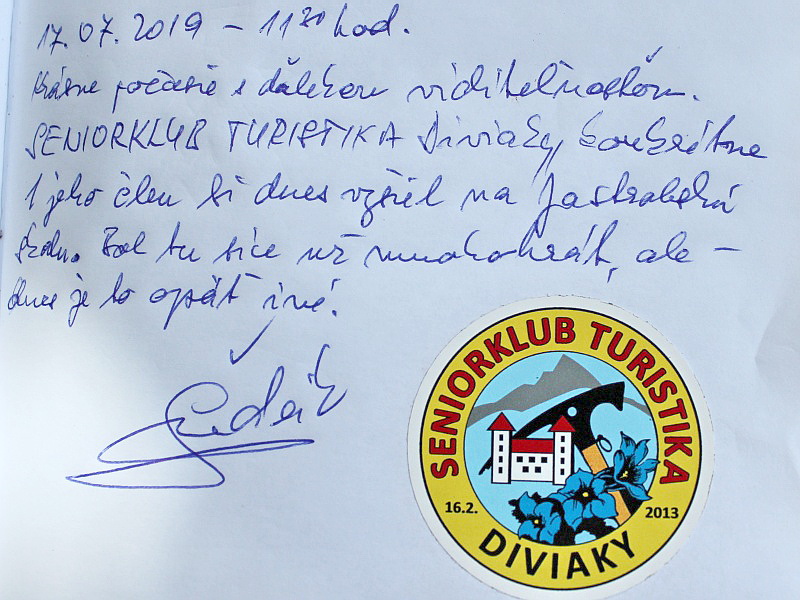 17.07.2019 - 11³⁰ hod.
Krásne počasie s ďalekou viditeľnosťou.
SENIORKLUB TURISTIKA Diviaky konkrétne
1 jeho člen si dnes vyšiel na Jastrabskú
skalu. Bol tu síce už mnohokrát, ale -
dnes je to opäť iné!
SENIORKLUB TURISTIKA
16.2. 2013
DIVIAKY